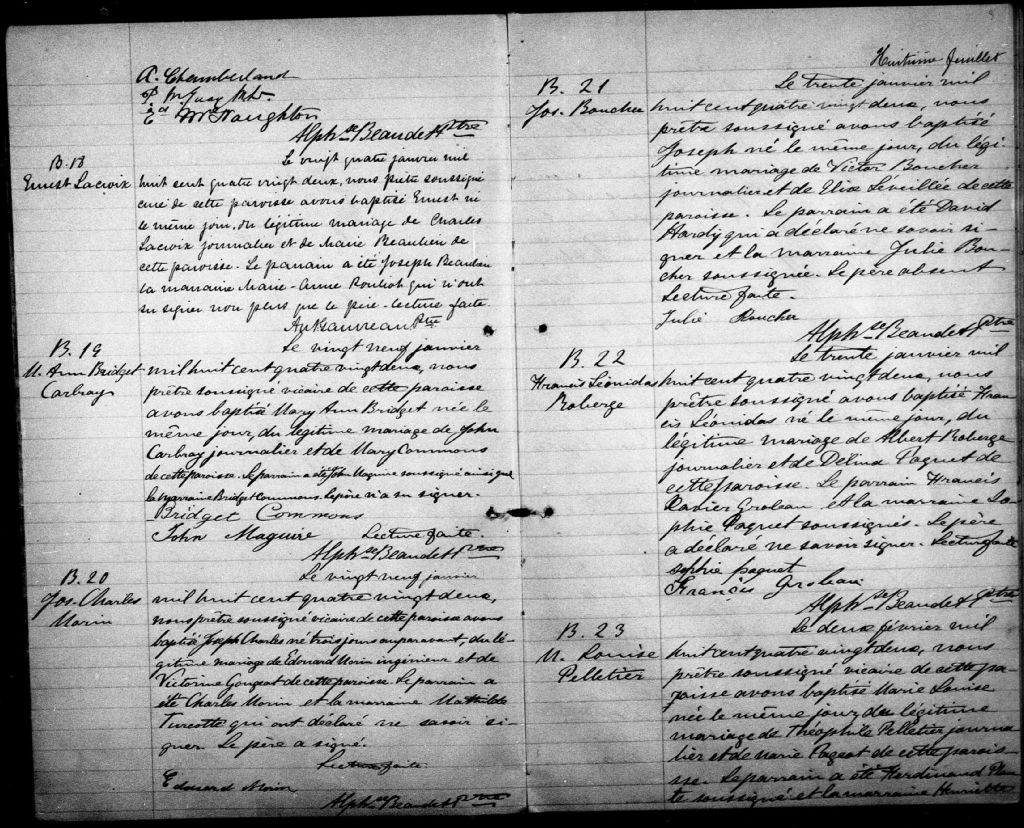 A. Chamberland
P. McGuay Mtr.
Ed McNaughton
Alphse Beaudet Ptre
B. 18
Ernest Lacroix
Le vingt quatre janvier mil
huit cent quatre vingt deux, nous prêtre soussigné
curé de cette paroisse avons baptisé Ernest né
le même jour, du légitime mariage de Charles
Lacroix journalier et de Marie Beaulieu de
cette paroisse. Le parrain a été Joseph Beaulieu
la marraine Marie-Anne Rouleau qui n'ont
su signer non plus que le père. lecture faite.
Ptre
B. 19
M. Ann Bridget
Carbray
Le vingt neuf janvier
mil huit cent quatre vingt deux, nous
prêtre soussigné vicaire de cette paroisse
avons baptisé Mary Ann Bridget née le
même jour, du légitime mariage de John
Carbray journalier et de Mary Commons
de cette paroisse. Le parrain a été John Maguire soussigné ainsi que
la marraine Bridget Commons. Le père n'a su signer.
Bridget Commons
John Maguire Lecture faite.
Alphse Beaudet Ptre
B. 20
Jos. Charles
Morin
Le vingt neuf janvier
mil huit cent quatre vingt deux,
nous prêtre soussigné vicaire de cette paroisse avons
baptisé Joseph Charles né trois jours auparavant, du lé-
gitime mariage de Edouard Morin ingénieur et de
Victorine Gougeat de cette paroisse. Le parrain a
été Charles Morin et la marraine Mathilde
Turcotte qui ont déclaré ne savoir si-
gner. Le père a signé.
Lecture faite.
Edouard Morin
Alphse Beaudet Ptre
Huitième feuillet
B. 21
Jos. Boucher
Le trente janvier mil
huit cent quatre vingt deux, nous
prêtre soussigné avons baptisé
Joseph né le même jour, du légi-
time mariage de Victor Boucher
journalier et de Eliza Léveillée de cette
paroisse. Le parrain a été David
Hardy qui a déclaré ne savoir si-
gner et la marraine Julie Bou-
cher soussignée. Le père absent
Lecture faite.
Julie Boucher
Alphse Beaudet Ptre
B. 22
Francis Léonidas
Roberge
Le trente janvier mil
huit cent quatre vingt deux, nous
prêtre soussigné avons baptisé Fran
cis Léonidas né le même jour, du
légitime mariage de Albert Roberge
journalier et de Délina Paquet de
cette paroisse. Le parrain Francis
Xavier Groleau et la marraine So-
phie Paquet soussignés. Le père
a déclaré ne savoir signer. Lecture faite
sophie paquet
Francis Groleau
Alphse Beaudet Ptre
B. 23
M. Louise
Pelletier
Le deux février mil
huit cent quatre vingt deux, nous
prêtre soussigné vicaire de cette pa-
roisse avons baptisé Marie Louise
née le même jour, du légitime
mariage de Théophile Pelletier journa-
lier et de Marie Pageot de cette parois-
se. Le parrain a été Ferdinand Plan
te soussigné et la marraine Henriette